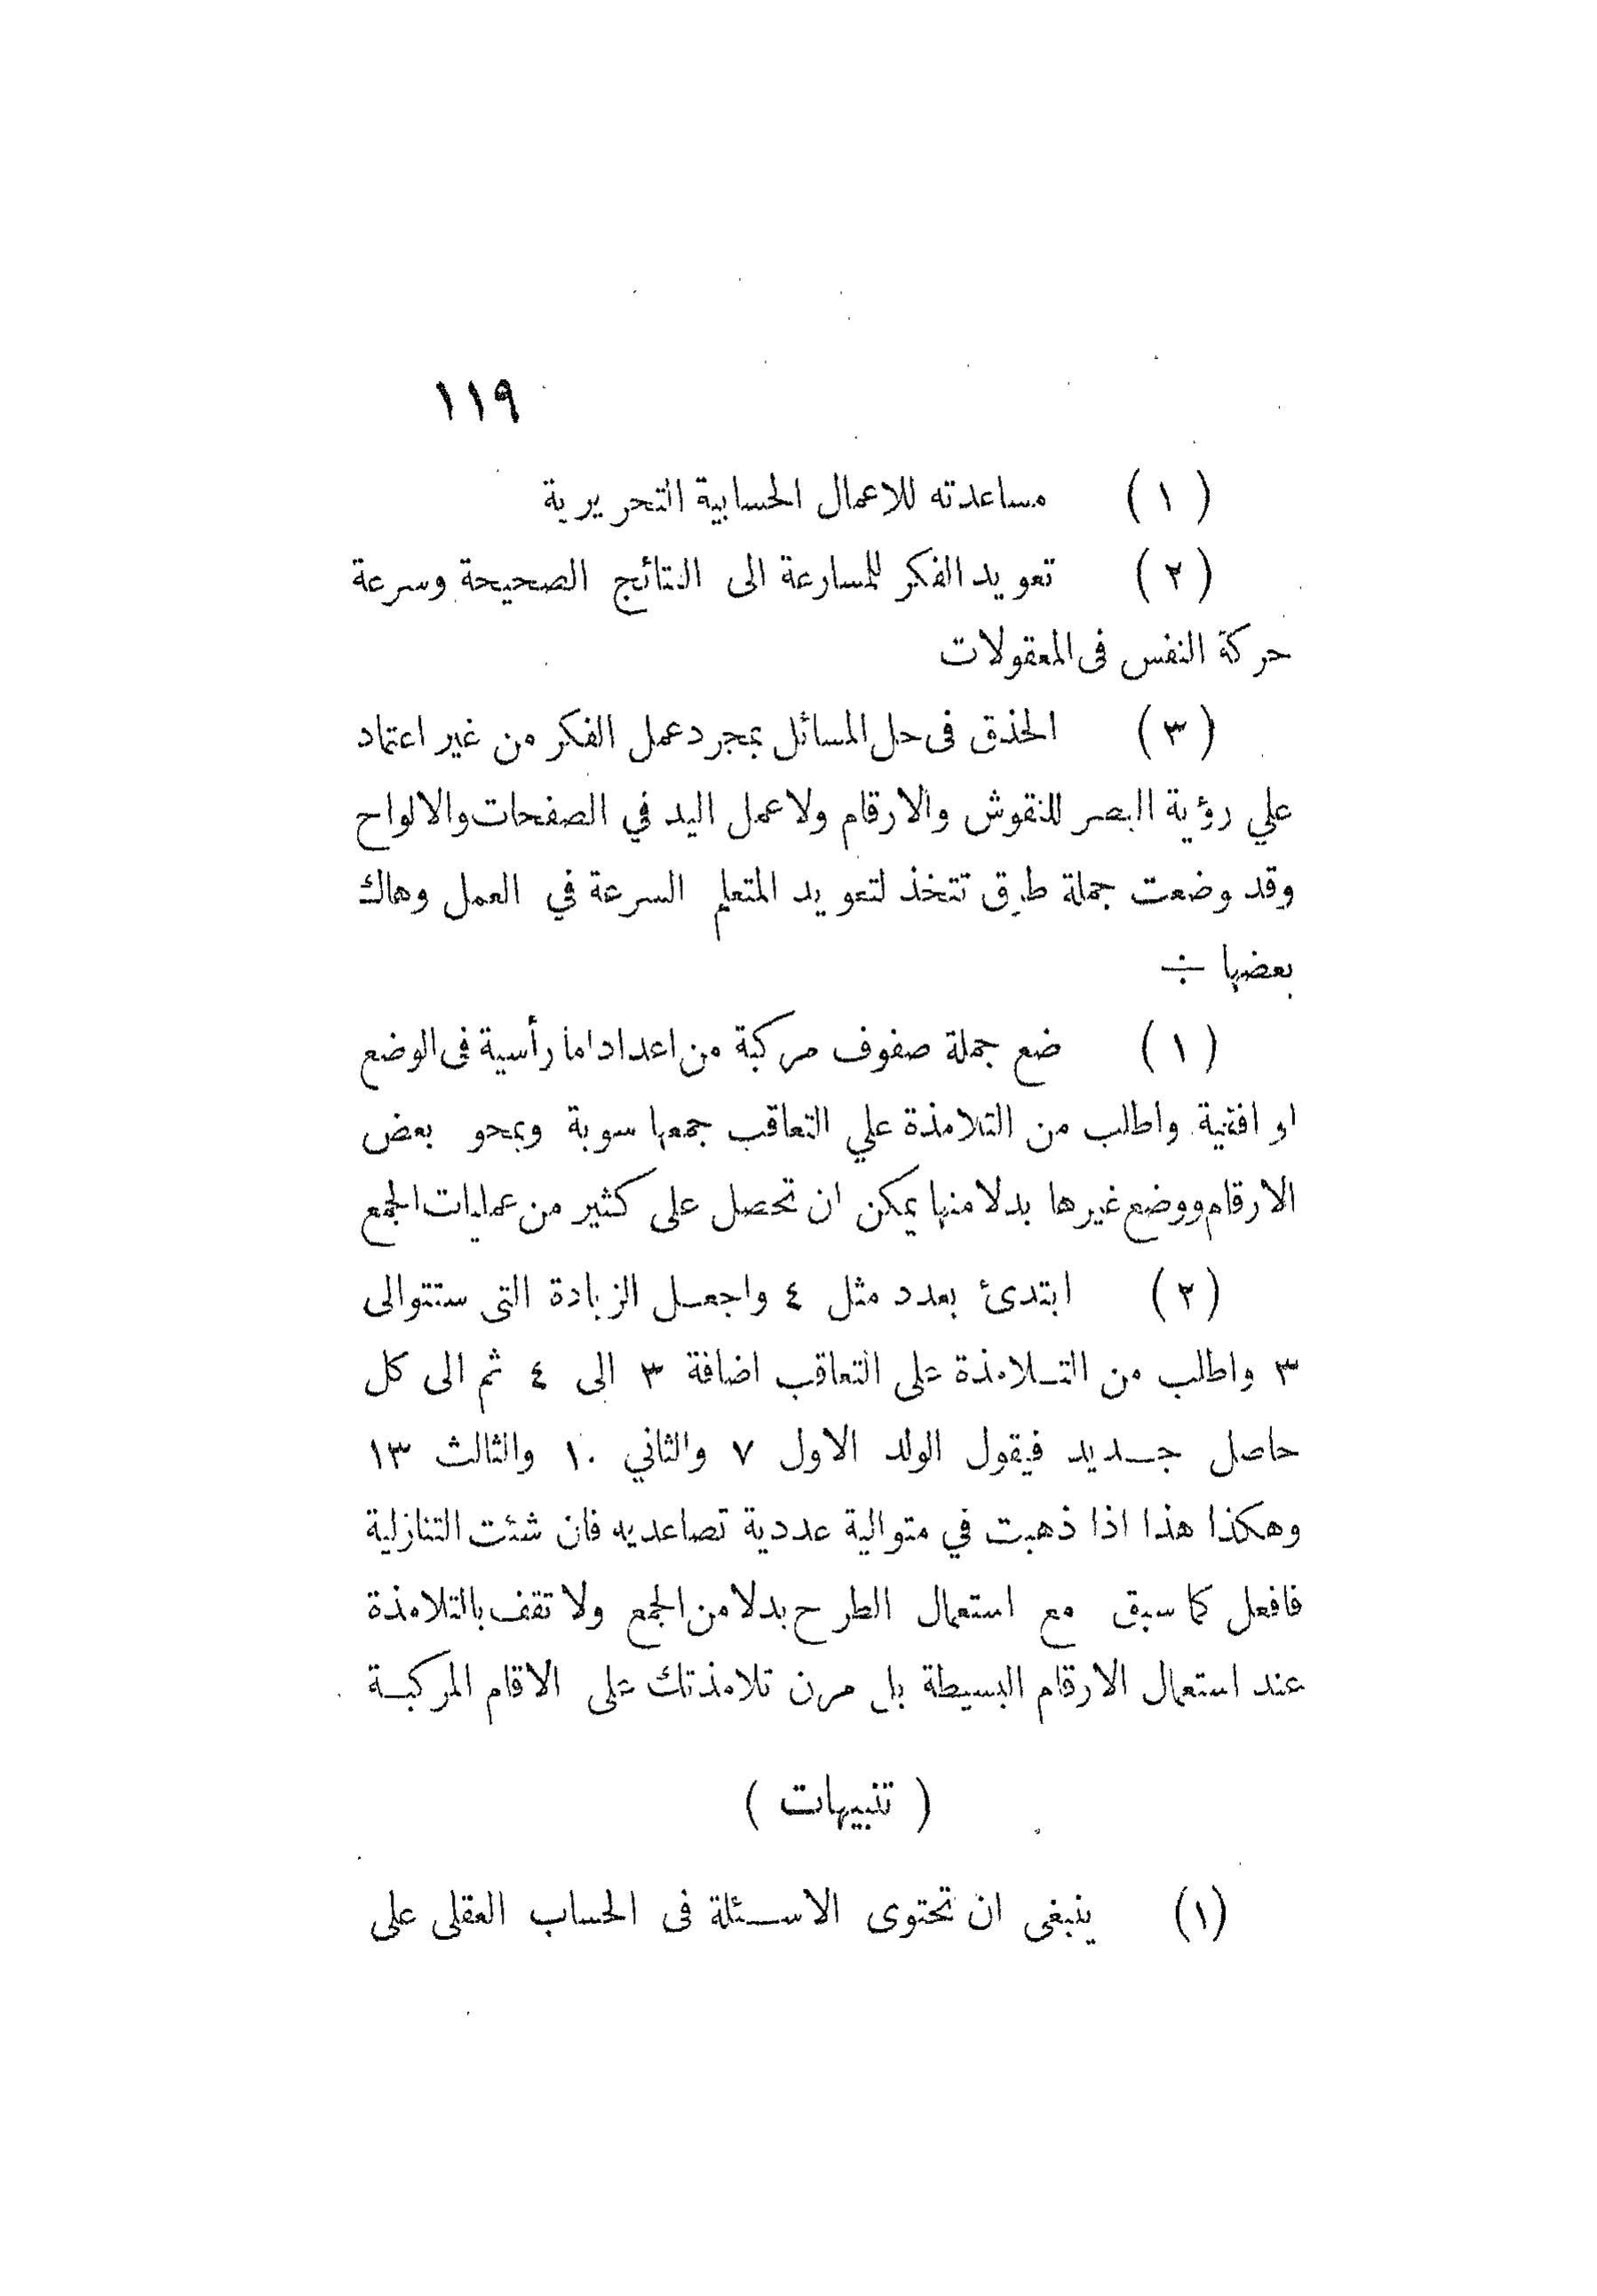 ١١٩
( ١ ) مساعدته للاعمال الحسابية التحريرية
( ٢ ) تعويد الفكر للمسارعة الى النتائج الصحيحة وسرعة
حركة النفس فى المعقولات
( ٣ ) الحذق فى حل المسائل بمجرد عمل الفكر من غير اعتماد
علي رؤية البصر للنقوش والارقام ولا عمل اليد في الصفحات والالواح
وقد وضعت جملة طرق تتخذ لتعويد المتعلم السرعة في العمل وهاك
بعضها ÷
( ١ ) ضع جملة صفوف مركبة من اعداد اما رأسية فى الوضع
او افقية واطلب من التلامذة علي التعاقب جمعها سوية وبمحو بعض
الارقام ووضع غيرها بدلا منها يمكن ان تحصل على كثير من عمليات الجمع
( ٢ ) ابتدئ بعدد مثل ٤ واجعل الزيادة التى ستتوالى
٣ واطلب من التلامذة على التعاقب اضافة ٣ الى ٤ ثم الى كل
حاصل جديد فيقول الولد الاول ٧ والثاني ١٠ والثالث ١٣
وهكذا هذا اذا ذهبت في متوالية عددية تصاعديه فان شئت التنازلية
فافعل كما سبق مع استعمال الطرح بدلا من الجمع ولا تقف بالتلامذة
عند استعمال الارقام البسيطة بل مرن تلامذتك على الاقام المركبة
( تنبيهات )
(١) ينبغى ان تحتوى الاسئلة فى الحساب العقلى على